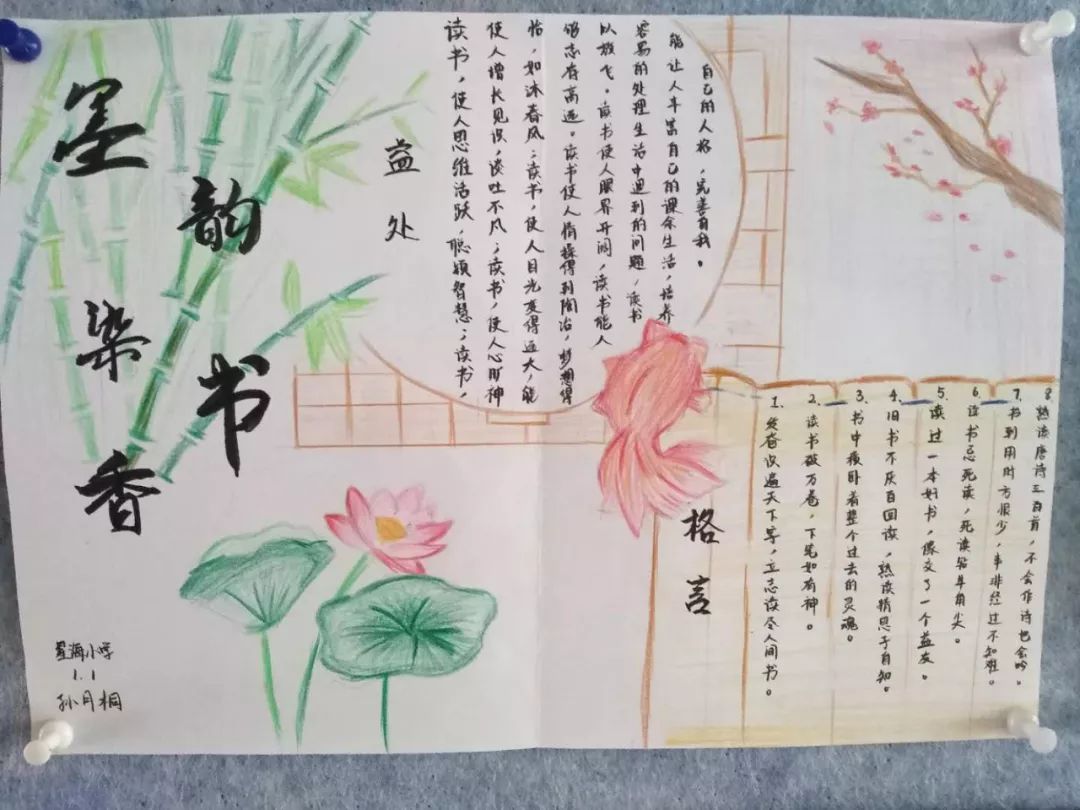 墨韵染书香
益处
读书，使人思维活跃，聪颖智慧；读书，
使人增长见识，谈吐不凡；读书，使人心旷神
怡，如沐春风；读书，使人目光变得远大，能
够志存高远。读书使人情操得到陶冶，梦想得
以放飞。读书使人眼界开阔，读书能人
容易的处理生活中遇到的问题，读书
能让人丰富自己的课余生活，培养
自己的人格，完善自我。
格言
1. 发奋识遍天下字，立志读尽人间书。
2. 读书破万卷，下笔如有神。
3. 书中横卧着整个过去的灵魂。
4. 旧书不厌百回读，熟读精思子自知。
5. 读过一本好书，像交了一个益友。
6. 读书忌死读，死读钻牛角尖。
7. 书到用时方恨少，事非经过不知难。
8. 熟读唐诗三百首，不会作诗也会吟。
星海小学
1.1
孙月桐